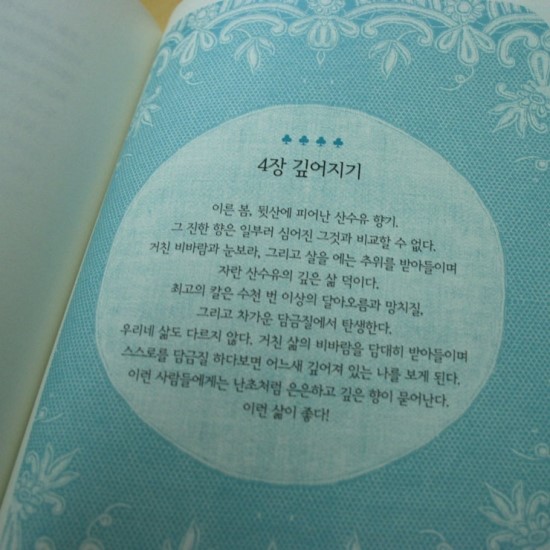 ♣ ♣ ♣ ♣
4장 깊어지기
이른 봄, 뒷산에 피어난 산수유 향기.
그 진한 향은 일부러 심어진 그것과 비교할 수 없다.
거친 비바람과 눈보라, 그리고 살을 에는 추위를 받아들이며
자란 산수유의 깊은 삶 덕이다.
최고의 칼은 수천 번 이상의 달아오름과 망치질,
그리고 차가운 담금질에서 탄생한다.
우리네 삶도 다르지 않다. 거친 삶의 비바람을 담대히 받아들이며
스스로를 담금질 하다보면 어느새 깊어져 있는 나를 보게 된다.
이런 사람들에게는 난초처럼 은은하고 깊은 향이 묻어난다.
이런 삶이 좋다!